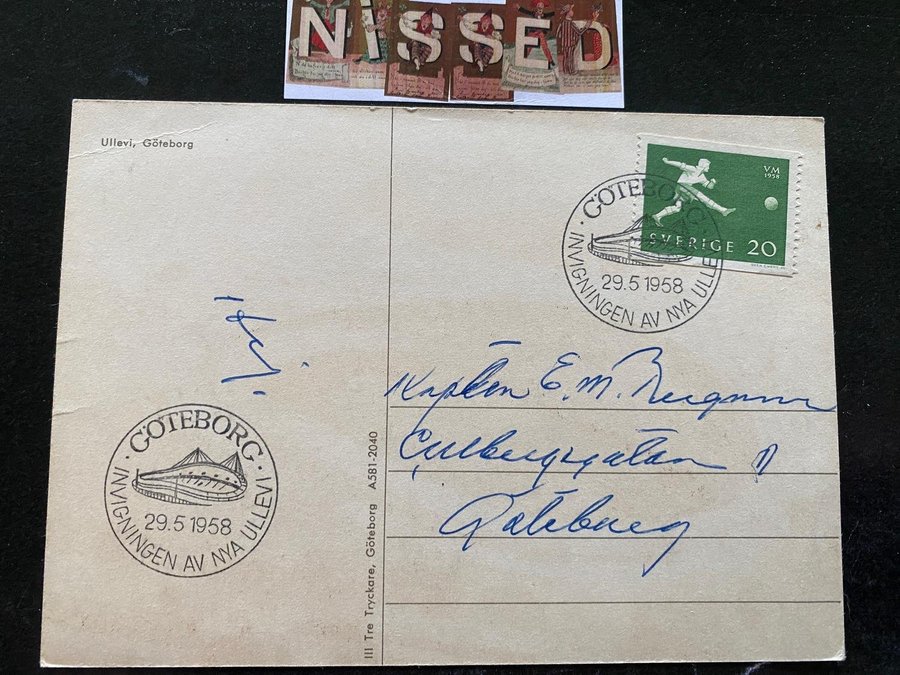 NiSSED
Ullevi, Göteborg
VM
1958
SVERIGE 20
· GÖTEBORG ·
29.5 1958
INVIGNINGEN AV NYA ULLEVI
Kapten E. M. Bergman
Göteborg
· GÖTEBORG ·
29.5 1958
INVIGNINGEN AV NYA ULLEVI
III Tre Tryckare, Göteborg A581-2040